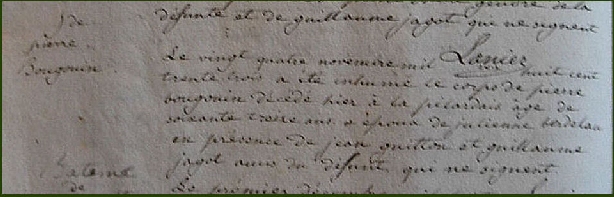 de
pierre
Bougouin
défunte et de guillaume jagot qui ne signent
Lanier
Le vingt quatre novembre mil huit cent
trente trois a été inhumé le corps de pierre
bougouin décédé hier à la pilardais âgé de
soixante treize ans époux de julienne
en présence de jean guitton et guillaume
jagot amis du défunt qui ne signent.
de
Le premier décembre